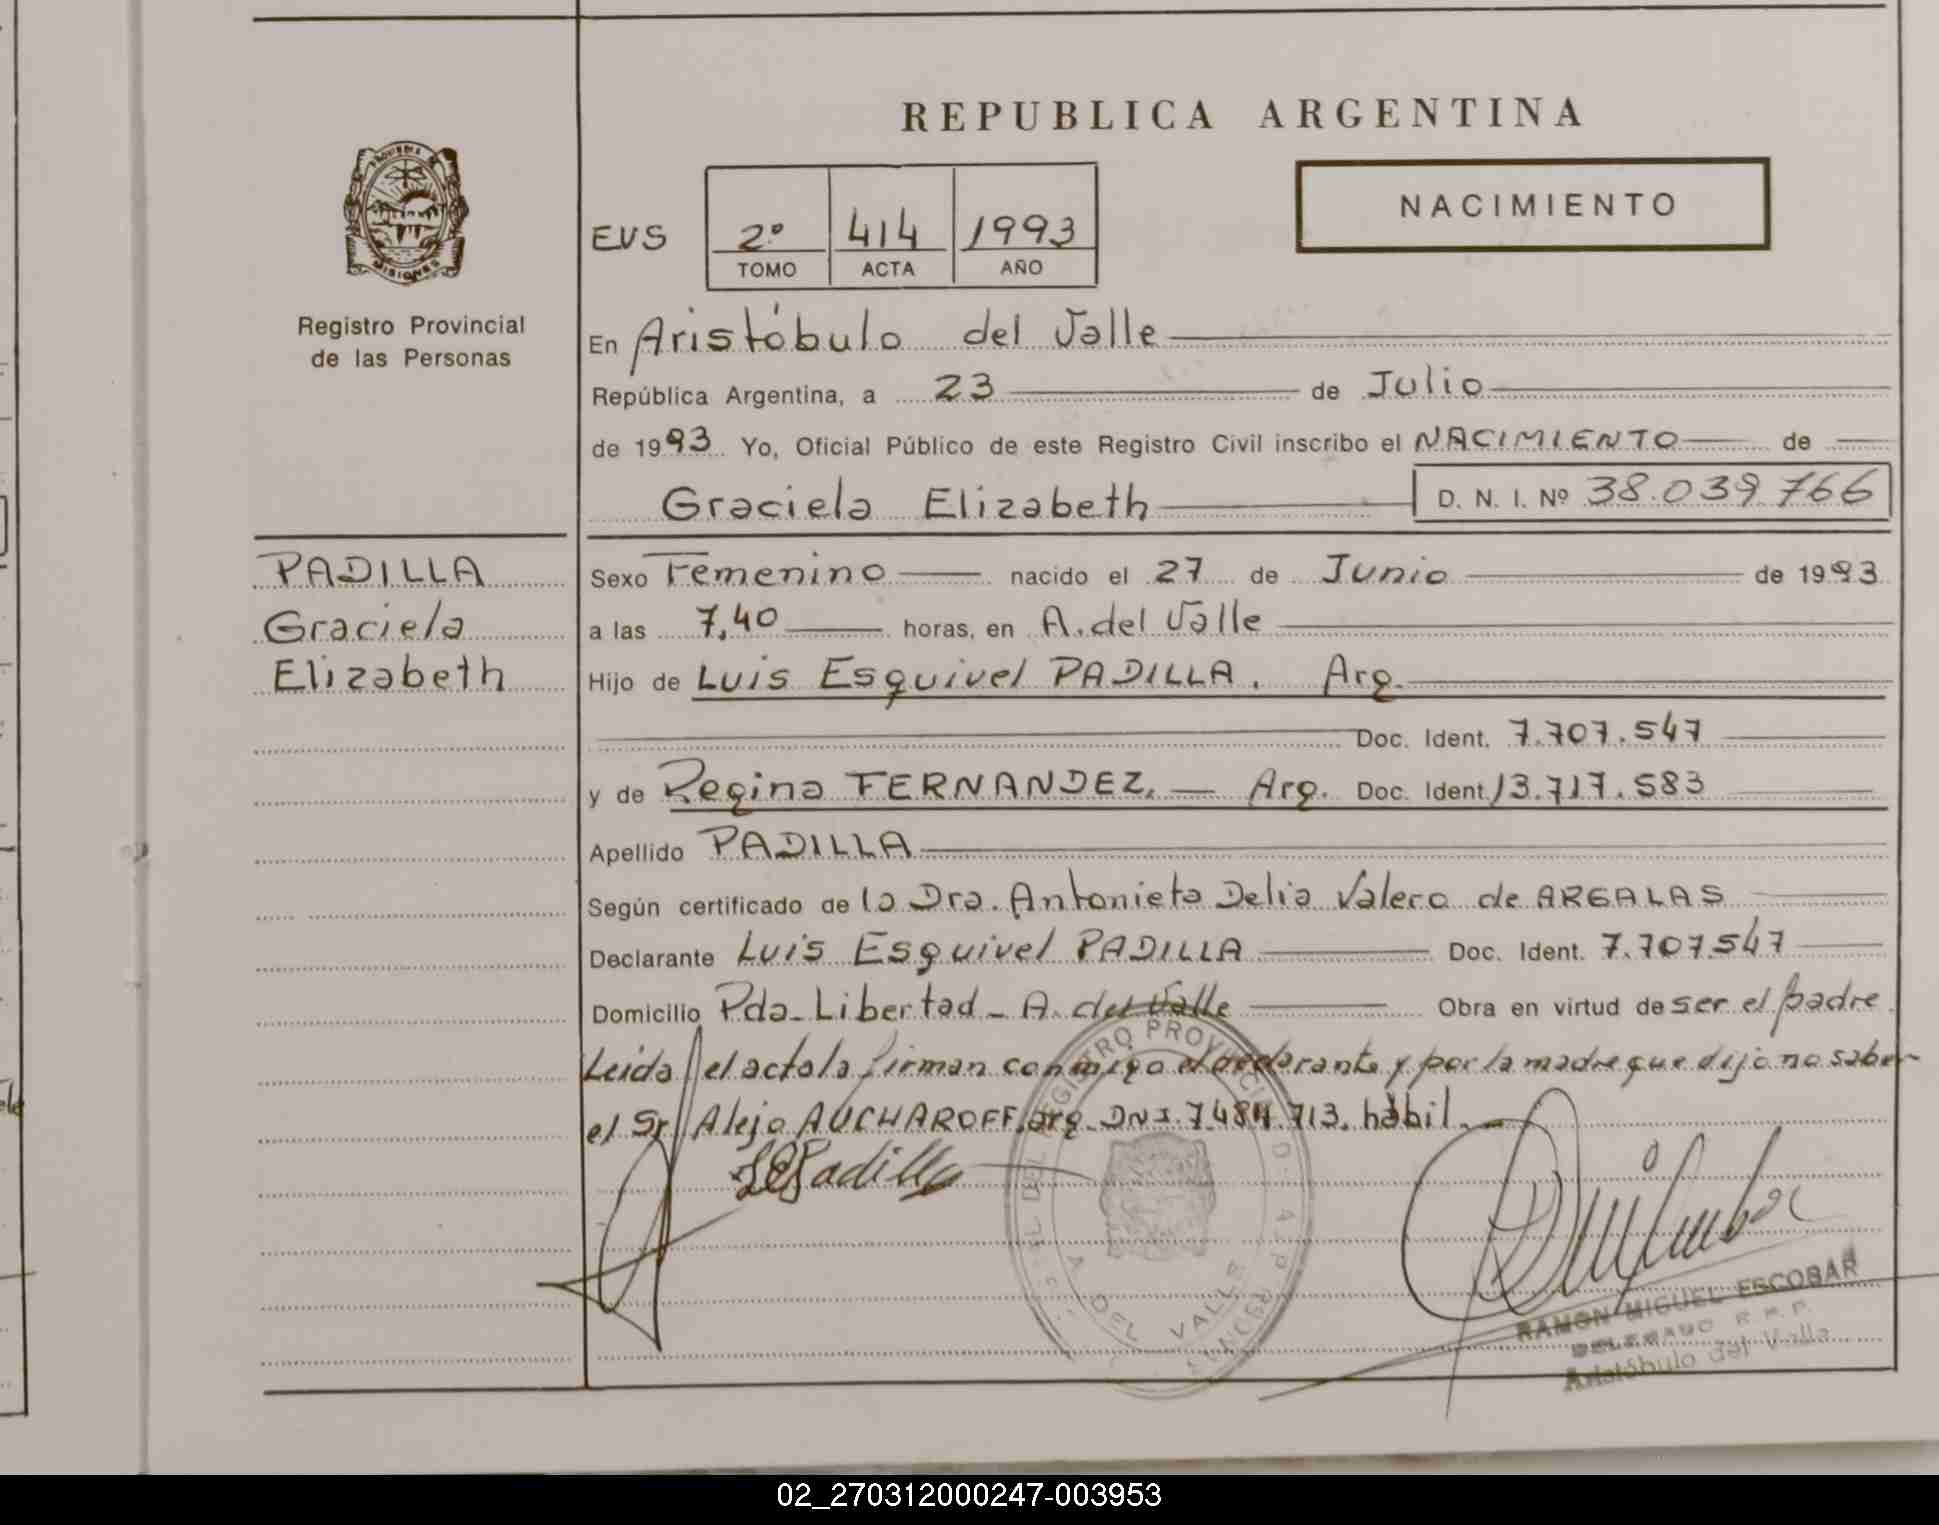 REPUBLICA ARGENTINA
NACIMIENTO
EVS
2º 414 1993
TOMO ACTA AÑO
PROVINCIA DE
MISIONES
Registro Provincial
de las Personas
En Aristóbulo del Valle
República Argentina, a 23 de Julio
de 1993 Yo, Oficial Público de este Registro Civil inscribo el NACIMIENTO de
Graciela Elizabeth D. N. I. Nº 38.039.766
PADILLA
Graciela
Elizabeth
Sexo Femenino nacido el 27 de Junio de 1993
a las 7,40 horas, en A. del Valle
Hijo de Luis Esquivel PADILLA. Arg.
Doc. Ident. 7.707.547
y de Regina FERNANDEZ. Arg. Doc. Ident. 13.717.583
Apellido PADILLA
Según certificado de la Dra. Antonieta Delia Valero de ARGALAS
Declarante Luis Esquivel PADILLA Doc. Ident. 7.707.547
Domicilio Pda. Libertad - A. del Valle Obra en virtud de ser el padre.
Leida el acta la firman conmigo el declarante y por la madre que dijo no saber
el Sr. Alejo AUCHAROFF, arg. DNI. 7.484.713. hábil.
LEPadilla
REGISTRO PROVINCIAL D
A DEL VALLE
RAMON MIGUEL ESCOBAR
DELEGADO R.P.P.
Aristóbulo del Valle
02_270312000247-003953